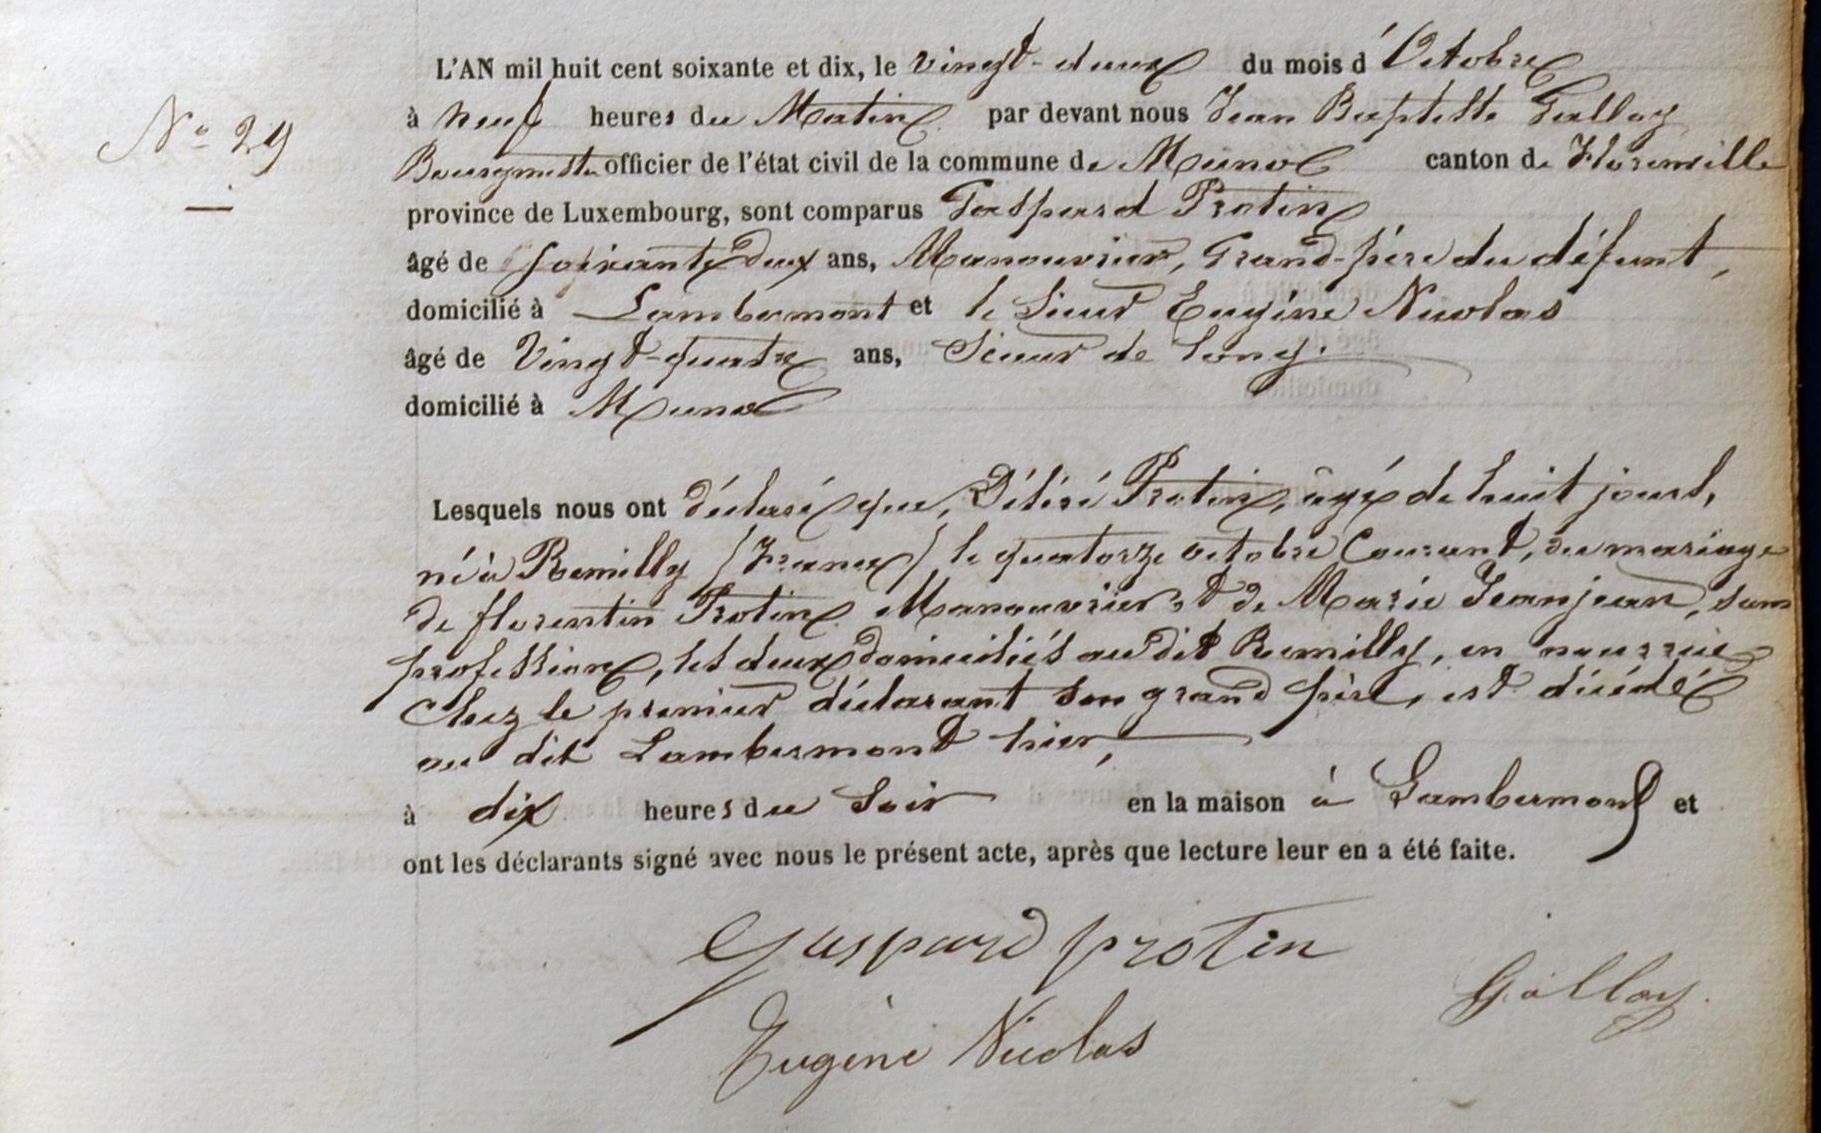 L'AN mil huit cent soixante et dix, le vingt-deux du mois d'Octobre
à neuf heures du Matin par devant nous Jean Baptiste Galloy
N° 29
Bourgmestre officier de l'état civil de la commune de Muno canton de Florenville
province de Luxembourg, sont comparus Gaspard Protin
âgé de soixante deux ans, Manouvrier, Grand-père du défunt,
domicilié à Lambermont et le Sieur Eugène Nicolas
âgé de Vingt-quatre ans, Scieur de long.
domicilié à Muno
Lesquels nous ont déclaré que, Désiré Protin, âgé de huit jours,
né à Remilly (France) le quatorze octobre Courant, du mariage
de florentin Protin Manouvrier et de Marie Jeanjean, sans
profession, les deux domiciliés au dit Remilly, en nourrice
Chez le premier déclarant son grand père, est décédé
au dit Lambermont hier,
à dix heures du Soir en la maison à Lambermont et
ont les déclarants signé avec nous le présent acte, après que lecture leur en a été faite.
Gaspard protin
Gálloy.
Eugène Nicolas